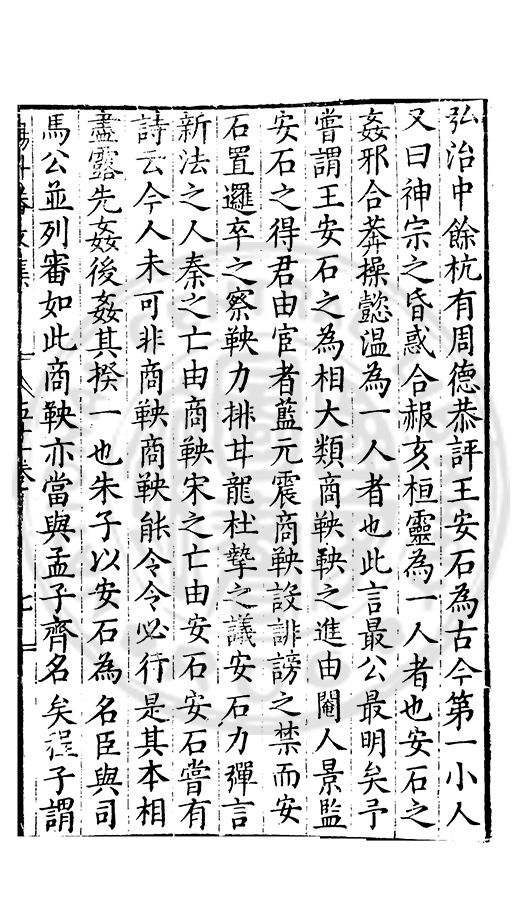 弘治中餘杭有周德恭評王安石為古今第一小人
又曰神宗之昏惑合赧亥桓靈為一人者也安石之
姦邪合莽操懿温為一人者也此言最公最明矣予
嘗謂王安石之為相大類商鞅鞅之進由閹人景監
安石之得君由宦者藍元震商鞅設誹謗之禁而安
石置邏卒之察鞅力排甘龍杜摯之議安石力彈言
新法之人秦之亡由商鞅宋之亡由安石安石嘗有
詩云今人未可非商鞅商鞅能令令必行是其本相
盡露先姦後姦其揆一也朱子以安石為名臣與司
馬公並列審如此商鞅亦當與孟子齊名矣程子謂